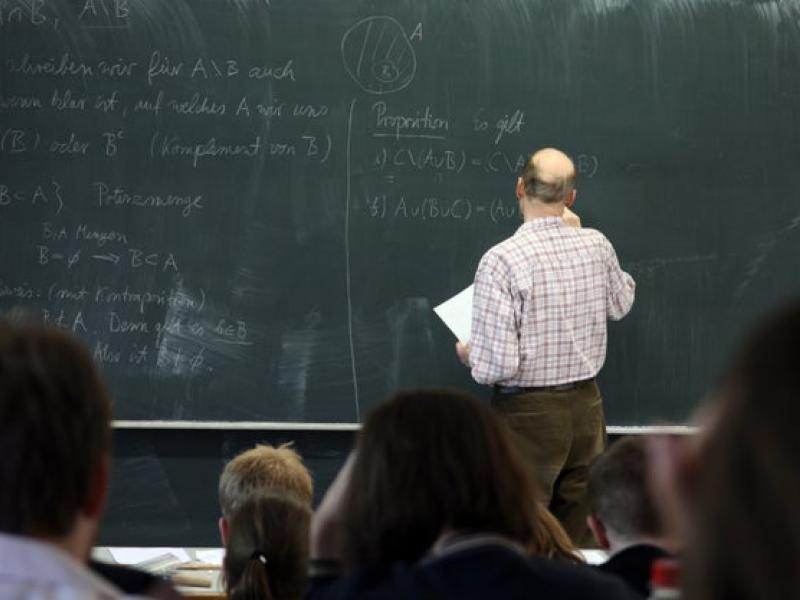 ∩B, A\B
schreiben wir für A\B auch
wenn klar ist, auf welches A wir uns
(B) oder Bᶜ (Komplement von B)
B⊂A} Potenzmenge
B, A Mengen
B=∅ → B⊂A
(mit Kontraposition)
⊄ A. Denn gibt es b∈B
Also ist B≠∅.
A
B
Proposition Es gilt
C\(A∪B)=(C\A B)
A∪(B∪C)=(A∪